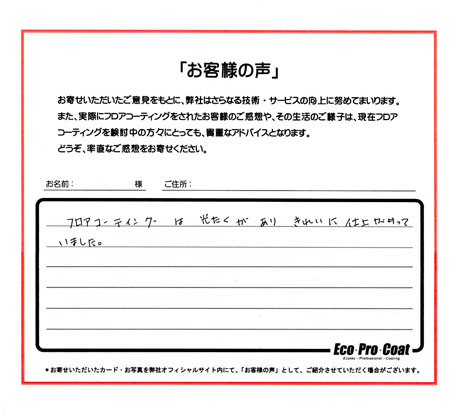 「お客様の声」
お寄せいただいたご意見をもとに、弊社はさらなる技術・サービスの向上に努めてまいります。
また、実際にフロアコーティングをされたお客様のご感想や、その生活のご様子は、現在フロア
コーティングを検討中の方々にとっても、貴重なアドバイスとなります。
どうぞ、率直なご感想をお寄せください。
お名前： 様 ご住所：
フロアコーティングは光たくがありきれいに仕上がって
いました。
Eco・Pro・Coat
Ecotec・Professional・Coating
＊お寄せいただいたカード・お写真を弊社オフィシャルサイト内にて、「お客様の声」として、ご紹介させていただく場合がございます。